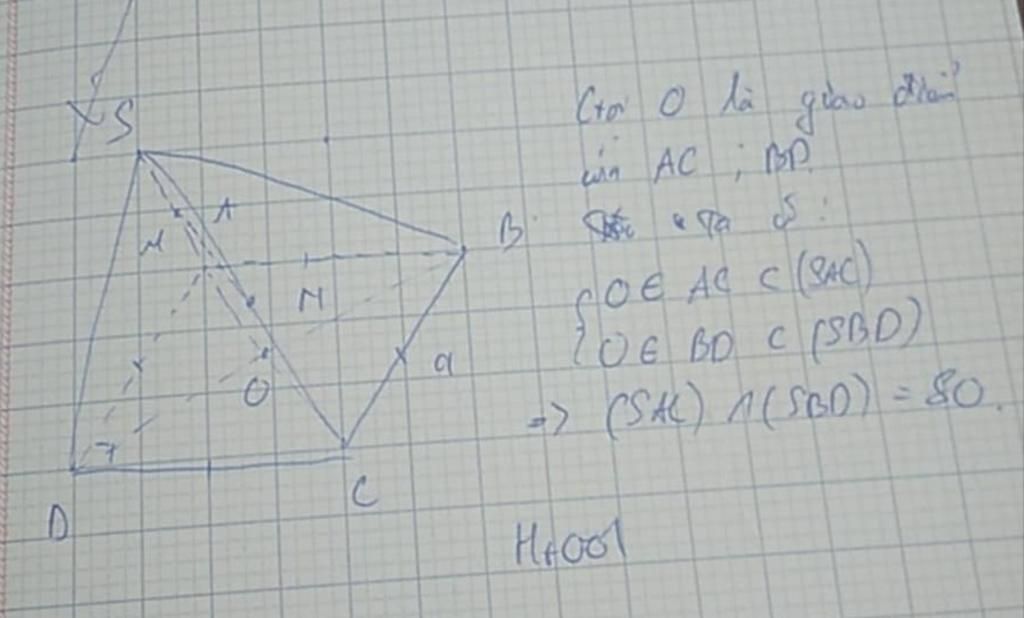 S
A
M
B
N
O
Q
D
C
Gọi O là giao điểm
của AC ; BD
Ta có :
{ O ∈ AC ⊂ (SAC)
O ∈ BD ⊂ (SBD)
=> (SAC) ∩ (SBD) = SO.